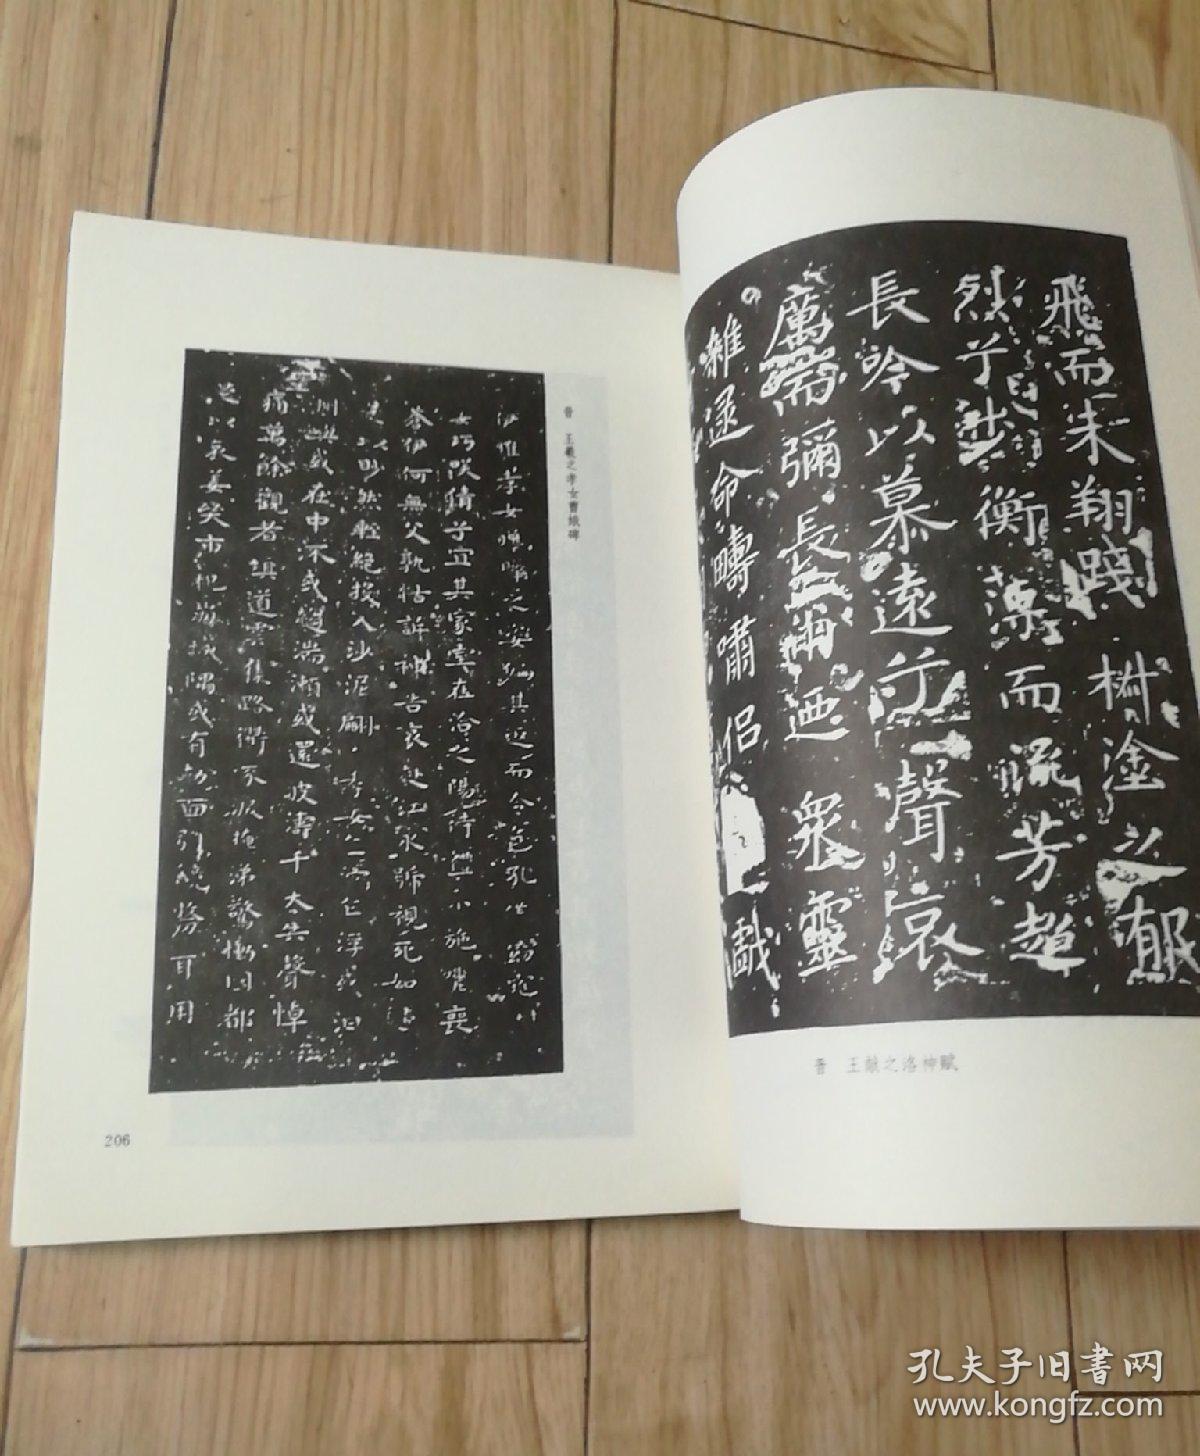 飛而未翔踐椒塗之郁
烈兮步衡薄而流芳超
長吟以慕遠兮聲哀
厲而彌長爾迺衆靈
雜遝命疇嘯侶戲
晋 王獻之洛神賦
晋 王羲之孝女曹娥碑
伊惟孝女之姿偏其返而令色孔窈窕
女巧笑倩兮宜其家室在洽之陽待禮施嗟喪
蒼伊何無父孰怙訴神告哀赴江永號視死如歸
是以眇然輕絕投入沙泥翩孝女沉乍浮或泊
洲嶼或在中流或趨湍瀨或還波濤千夫失聲悼
痛萬餘觀者填道雲集路衢泣淚掩涕驚慟國都
是以哀姜哭市杞崩城隅或有面引鏡剺耳用
206
孔夫子旧書网
www.kongfz.com